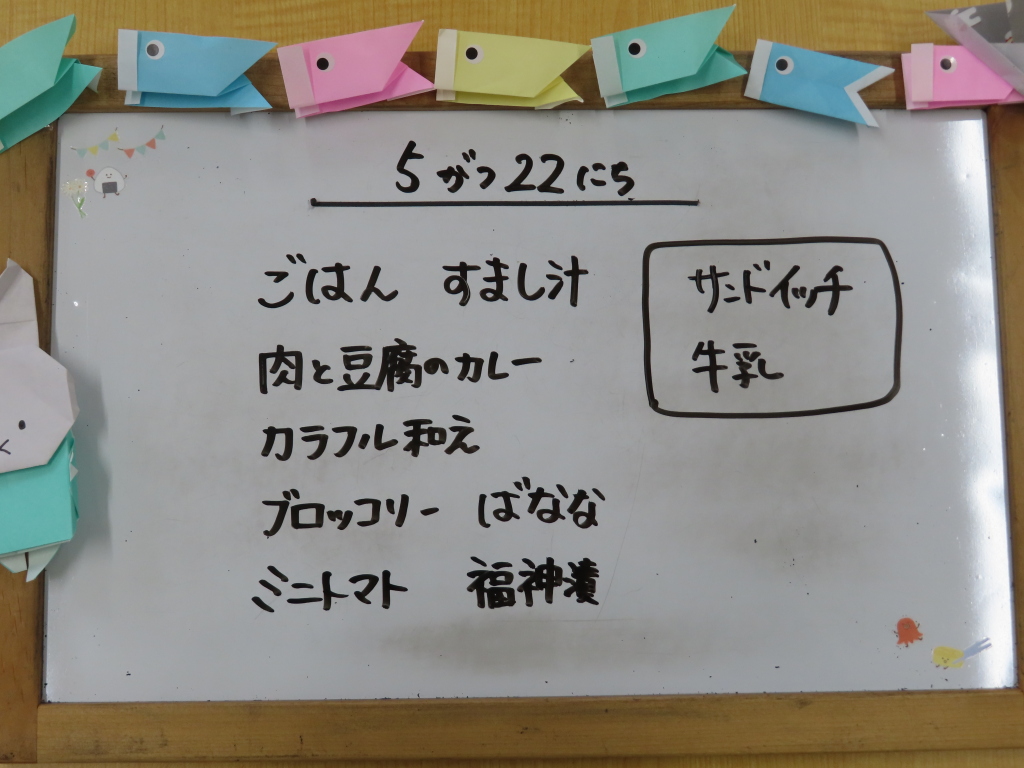 5がつ22にち
ごはん すまし汁
肉と豆腐のカレー
カラフル和え
ブロッコリー ばなな
ミニトマト 福神漬
サンドイッチ
牛乳